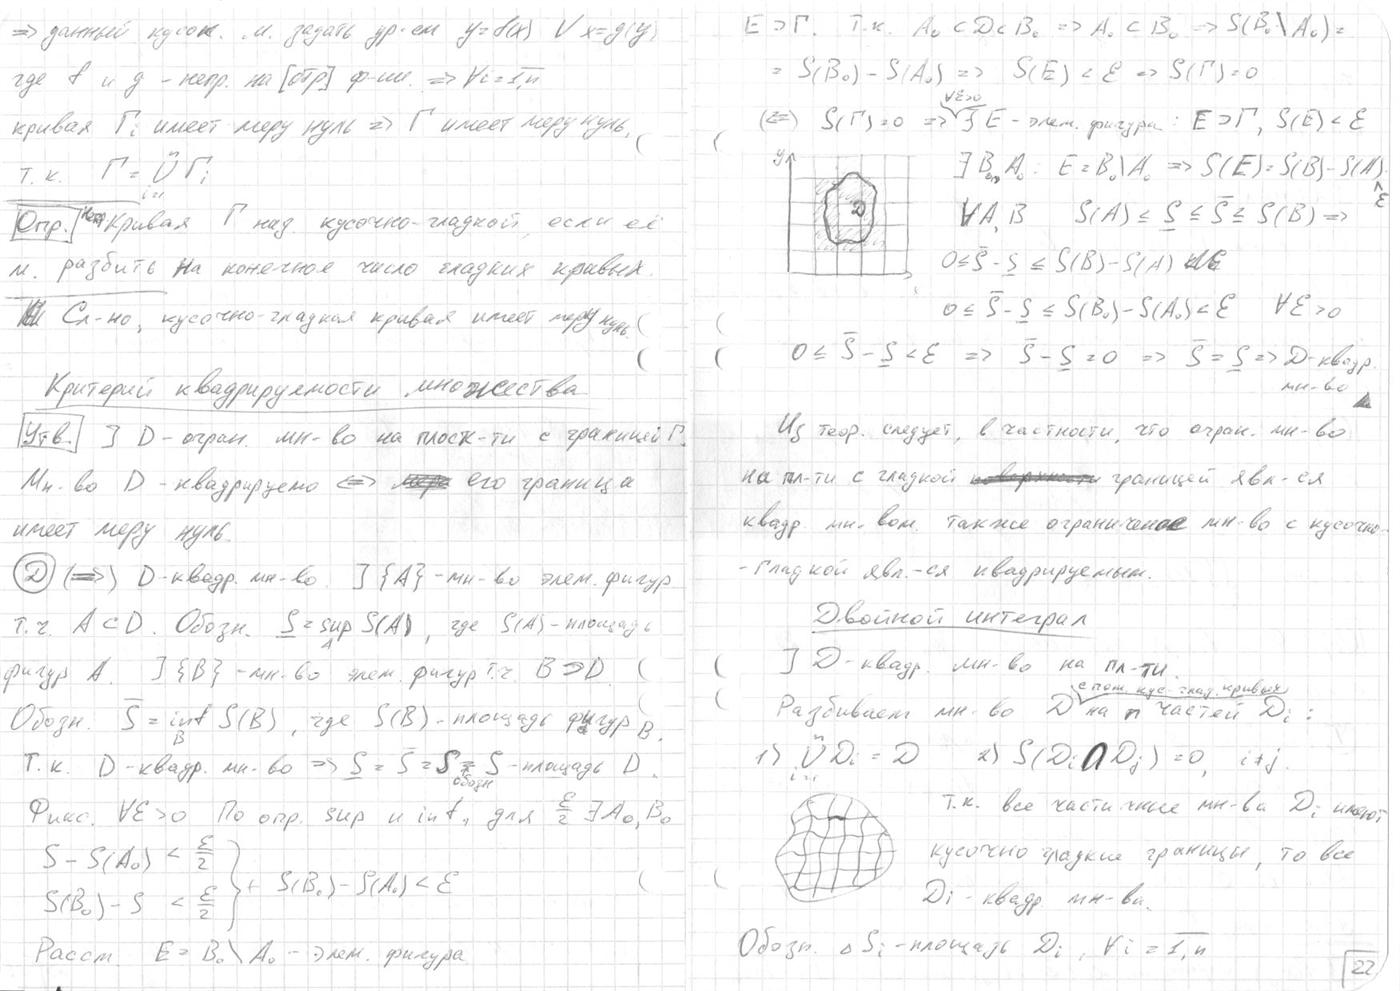 => данный кусок м. задать ур-ем y=f(x) V x=g(y),
где f и g - непр. на [отр] ф-ии. => ∀i=1,n
кривая Гi имеет меру нуль => Г имеет меру нуль,
т.к. Г = ∪ Гi
i=1
Опр. Непр Кривая Г наз. кусочно-гладкой, если её
м. разбить на конечное число гладких кривых.
Сл-но, кусочно-гладкая кривая имеет меру нуль.
Критерий квадрируемости множества
Утв. ] D - огран. мн-во на плоск-ти с границей Г.
Мн-во D - квадрируемо <=> его граница
имеет меру нуль.
Д (=>) D-квадр. мн-во. ] {A} - мн-во элем. фигур
т.ч. A ⊂ D. Обозн. S̲ = sup S(A), где S(A) - площадь
A
фигур A. ] {B} - мн-во элем. фигур т.ч. B ⊃ D.
Обозн. S̅ = inf S(B), где S(B) - площадь фигур B.
B
Т.к. D-квадр. мн-во => S̲ = S̅ = S = S - площадь D.
обозн
Фикс. ∀ε>0 По опр. sup и inf, для ε/2 ∃ A₀, B₀
S - S(A₀) < ε/2
S(B₀) - S < ε/2 } + S(B₀) - S(A₀) < ε
Рассм. E = B₀ \ A₀ - элем. фигура
E ⊃ Г. Т.к. A₀ ⊂ D ⊂ B₀ => A₀ ⊂ B₀ => S(B₀ \ A₀) =
= S(B₀) - S(A₀) => S(E) < ε => S(Г) = 0
∀ε>0
(<=) S(Г) = 0 => ∃ E - элем. фигура: E ⊃ Г, S(E) < ε
y
D
∃ B₀, A₀: E = B₀ \ A₀ => S(E) = S(B) - S(A) < ε
∀A, B S(A) ≤ S̲ ≤ S̅ ≤ S(B) =>
0 ≤ S̅ - S̲ ≤ S(B) - S(A)
0 ≤ S̅ - S̲ ≤ S(B₀) - S(A₀) < ε ∀ε>0
0 ≤ S̅ - S̲ < ε => S̅ - S̲ = 0 => S̅ = S̲ => D - квадр.
мн-во
Из теор. следует, в частности, что огран. мн-во
на пл-ти с гладкой границей явл-ся
квадр. мн-вом, также ограниченое мн-во с кусочно-
-гладкой явл.-ся квадрируемым.
Двойной интеграл
] D - квадр. мн-во на пл-ти.
с пом. кус-глад. кривых
Разбиваем мн-во D на n частей Di:
1) ∪ Di = D 2) S(Di ∩ Dj) = 0, i≠j.
i=1
т.к. все частичные мн-ва Di имеют
кусочно гладкие границы, то все
Di - квадр. мн-ва.
Обозн. ΔSi - площадь Di, ∀i = 1,n
22